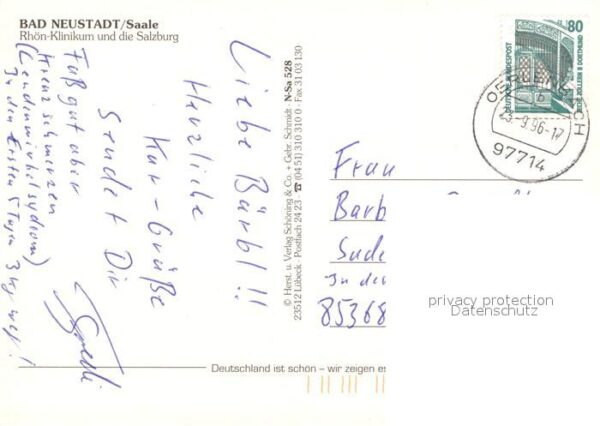 BAD NEUSTADT/Saale
Rhön-Klinikum und die Salzburg
Liebe Bärbl!!
Herzliche
Kur-Grüße
sendet Dir
Fuß gut aber
Kreuzschmerzen
(Lendenwirbelsydrom)
In den Ersten 5 Tagen 3 kg weg!
© Herst. u. Verlag Schöning & Co. + Gebr. Schmidt · N-Sa 528
23512 Lübeck · Postfach 24 23 · ☎ (04 51) 310 310 0 · Fax 31 03 130
80
DEUTSCHE BUNDESPOST
ZECHE ZOLLERN II DORTMUND
23.-9.96-17
97714
Frau
Barb
Sude
In der
85368
privacy protection
Datenschutz
Deutschland ist schön – wir zeigen es